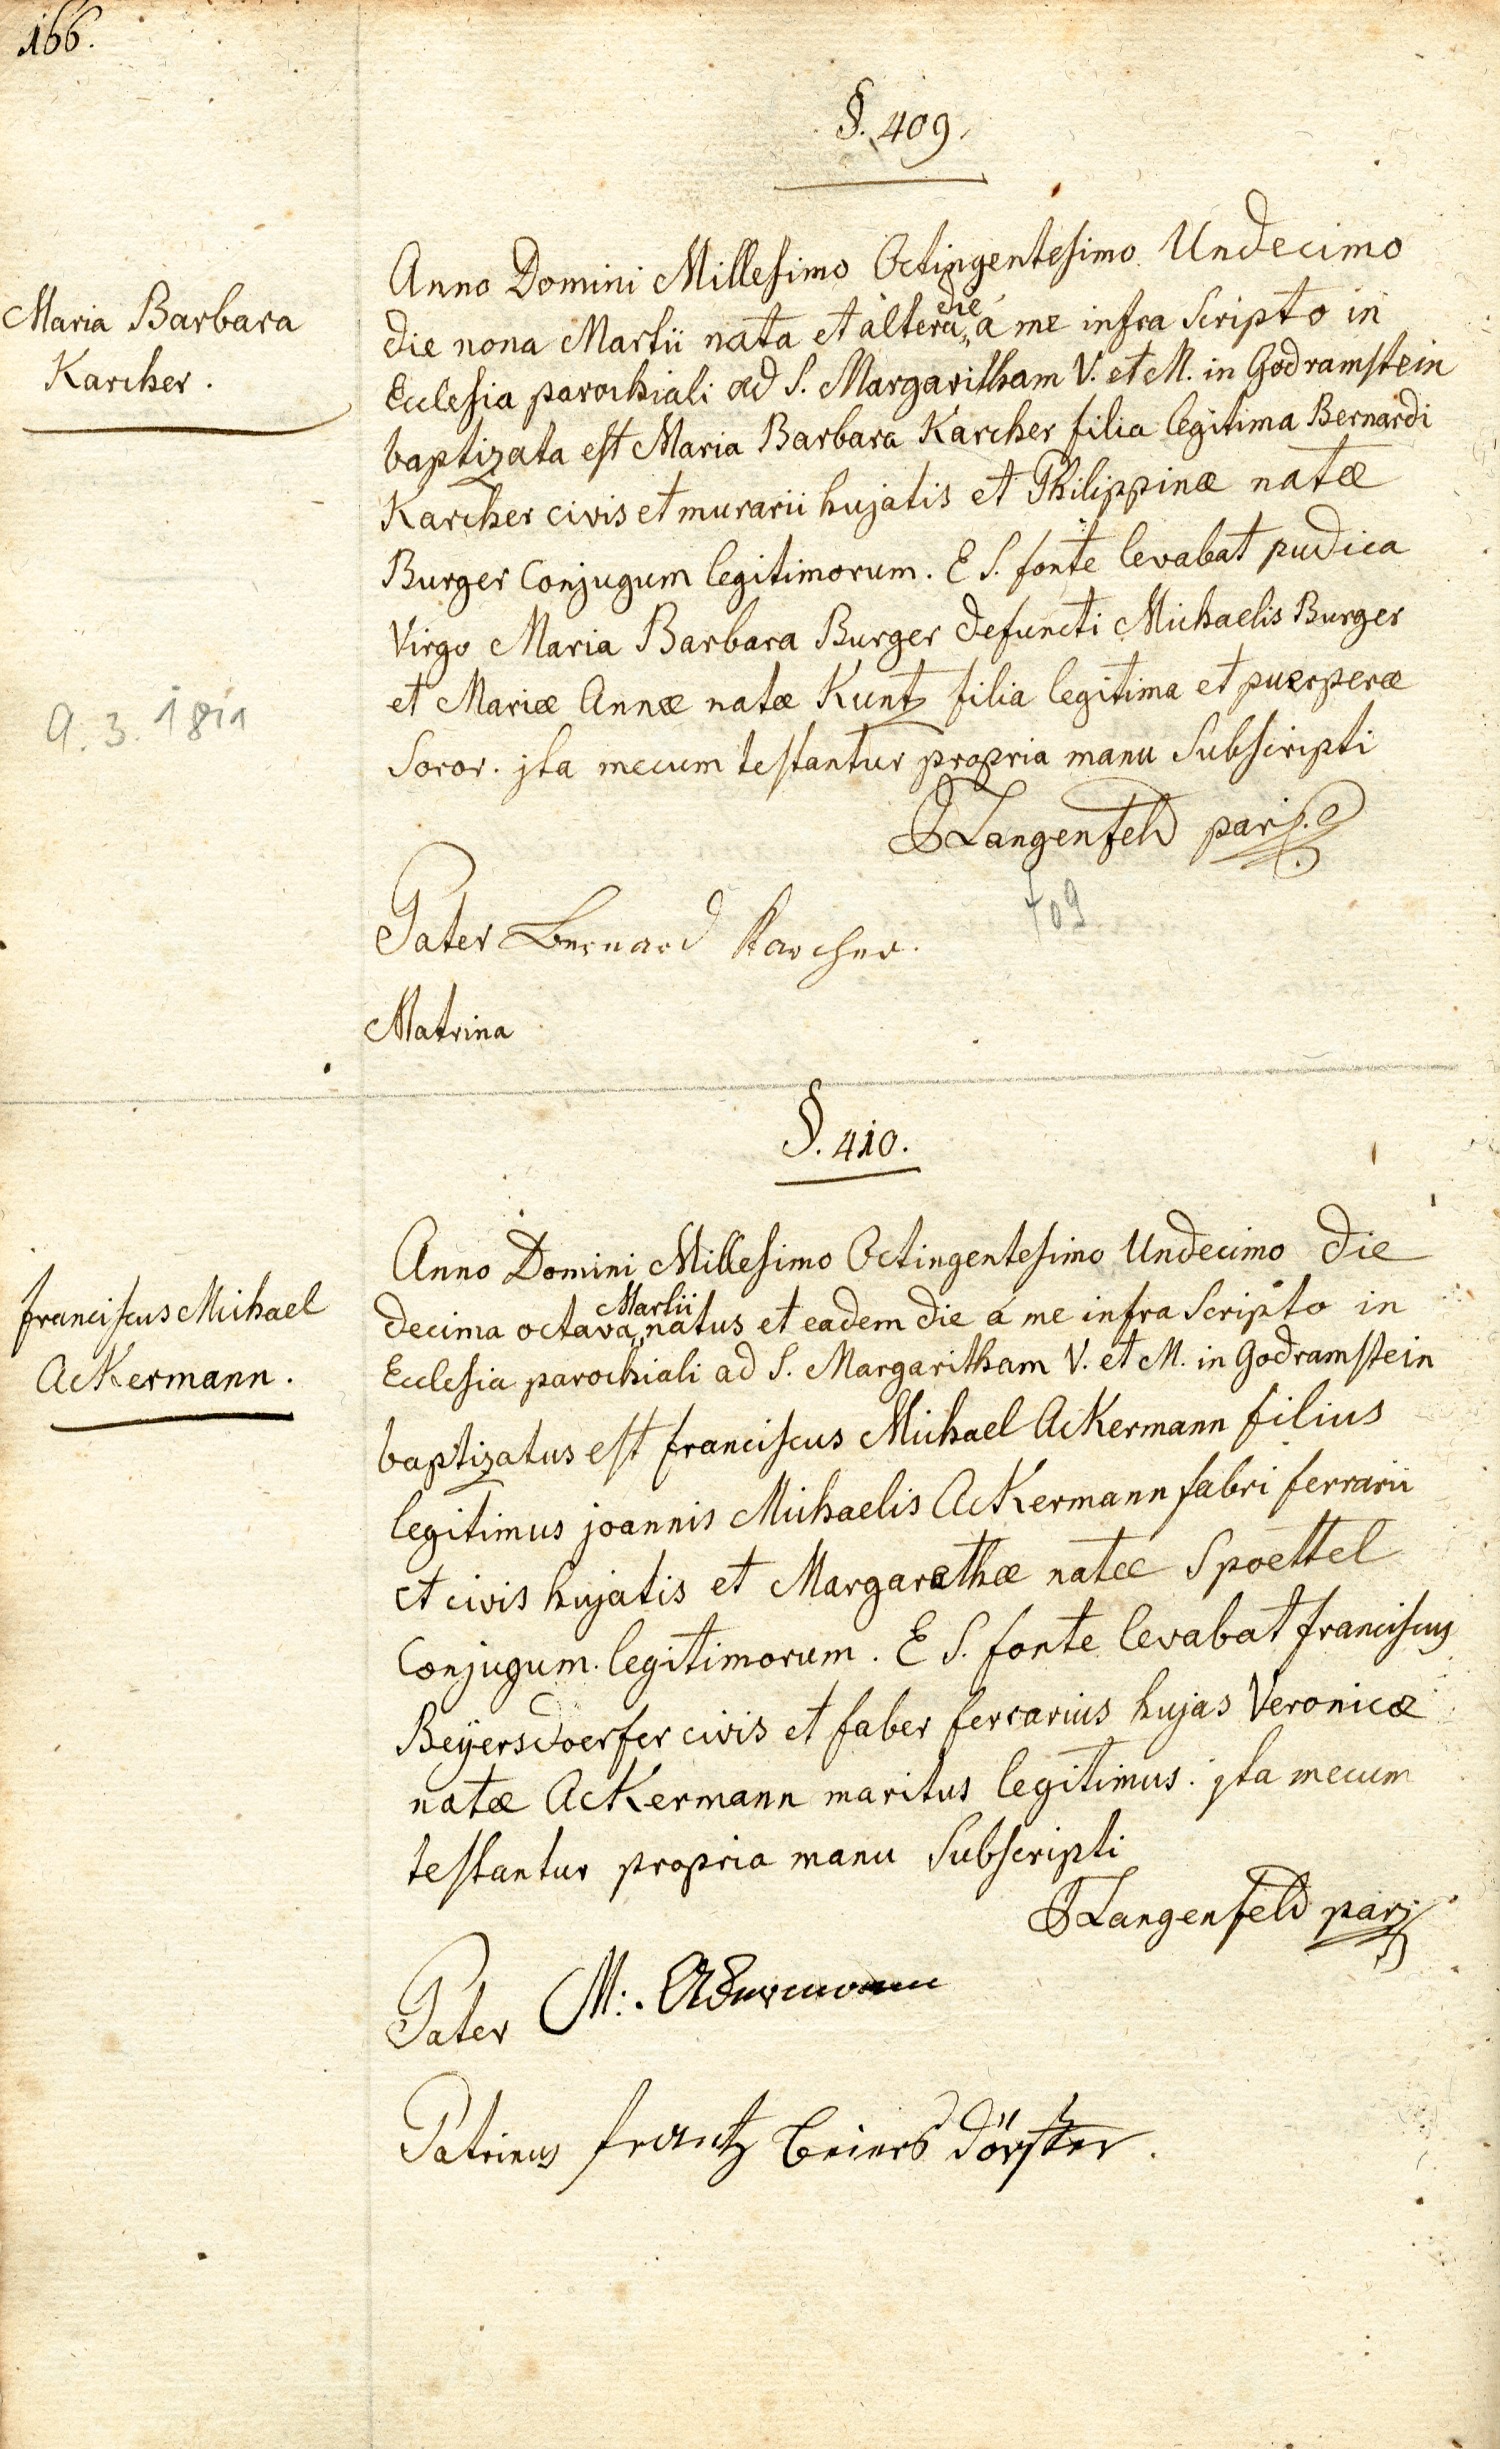 166.
§. 409.
Maria Barbara
Karcher.
Anno Domini Millesimo Octingentesimo Undecimo
die nona Martii nata et altera die á me infra Scripto in
Ecclesia parochiali ad S. Margaritham V. et M. in Godramstein
baptizata est Maria Barbara Karcher filia legitima Bernardi
Karcher civis et murarii hujatis et Philippinæ natæ
Burger Conjugum legitimorum. E S. fonte levabat pudica
Virgo Maria Barbara Burger defuncti Michaelis Burger
et Mariæ Annæ natæ Kuntz filia legitima et puerperæ
9. 3. 1811
Soror. jta mecum testantur propria manu Subscripti
Langenfeld par
409
Pater Bernard Karcher.
Matrina
§. 410.
franciscus Michael
Ackermann.
Anno Domini Millesimo Octingentesimo Undecimo die
decima octava Martii natus et eadem die á me infra Scripto in
Ecclesia parochiali ad S. Margaritham V. et M. in Godramstein
baptizatus est franciscus Michael Ackermann filius
legitimus joannis Michaelis Ackermann fabri ferrarii
et civis hujatis et Margarethæ natæ Spoettel
Conjugum legitimorum. E S. fonte levabat franciscus
Beÿersdoerfer civis et faber ferrarius hujas Veronicæ
natæ Ackermann maritus legitimus. jta mecum
testantur propria manu Subscripti
Langenfeld par
Pater M: Ackermann
Patrinus frantz Beiersdörfer.